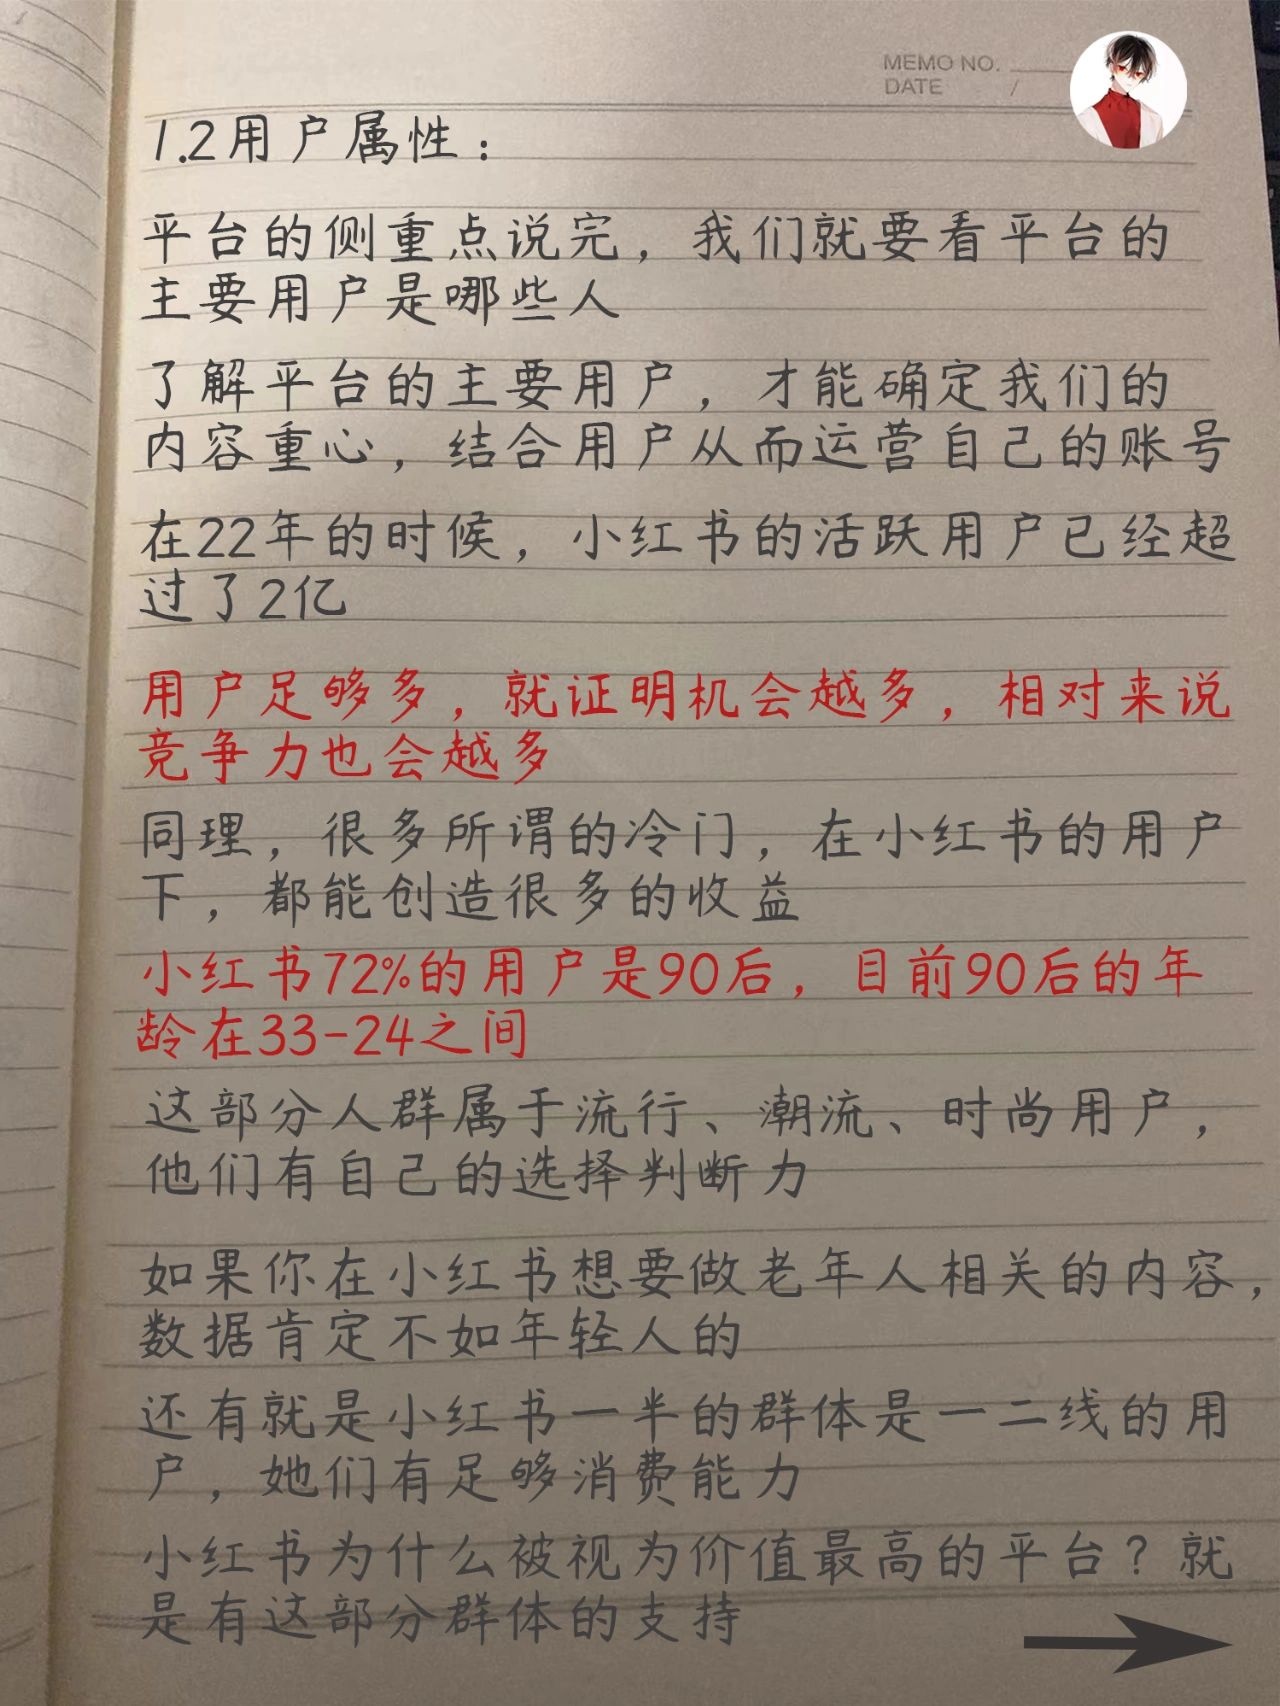 MEMO NO.
DATE /
1.2用户属性：
平台的侧重点说完，我们就要看平台的
主要用户是哪些人
了解平台的主要用户，才能确定我们的
内容重心，结合用户从而运营自己的账号
在22年的时候，小红书的活跃用户已经超
过了2亿
用户足够多，就证明机会越多，相对来说
竞争力也会越多
同理，很多所谓的冷门，在小红书的用户
下，都能创造很多的收益
小红书72%的用户是90后，目前90后的年
龄在33-24之间
这部分人群属于流行、潮流、时尚用户，
他们有自己的选择判断力
如果你在小红书想要做老年人相关的内容，
数据肯定不如年轻人的
还有就是小红书一半的群体是一二线的用
户，她们有足够消费能力
小红书为什么被视为价值最高的平台？就
是有这部分群体的支持